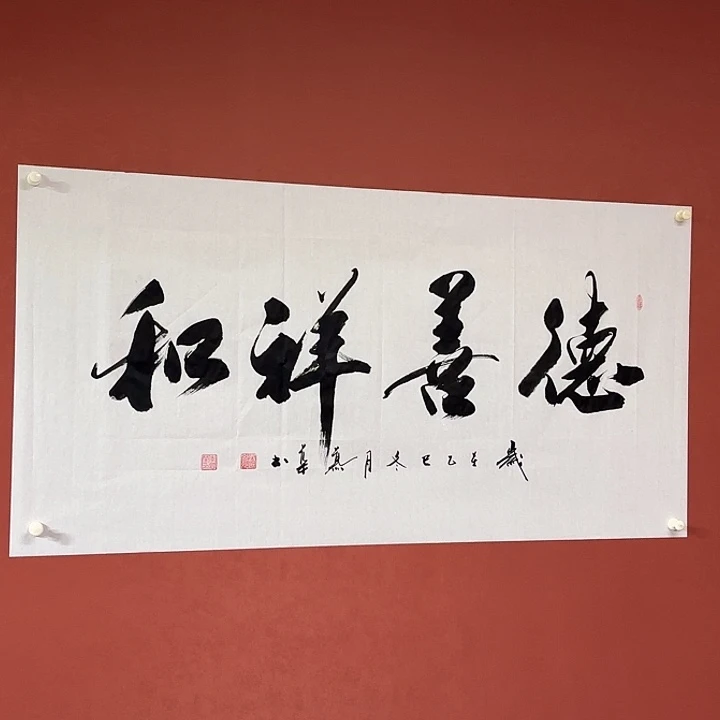 德善祥和
歲在乙巳冬月
书